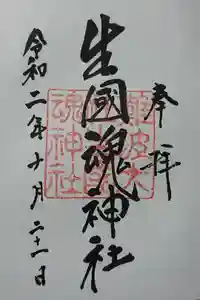 奉拝
難波大
生國魂神社
魂神社
令和二年十月二十一日